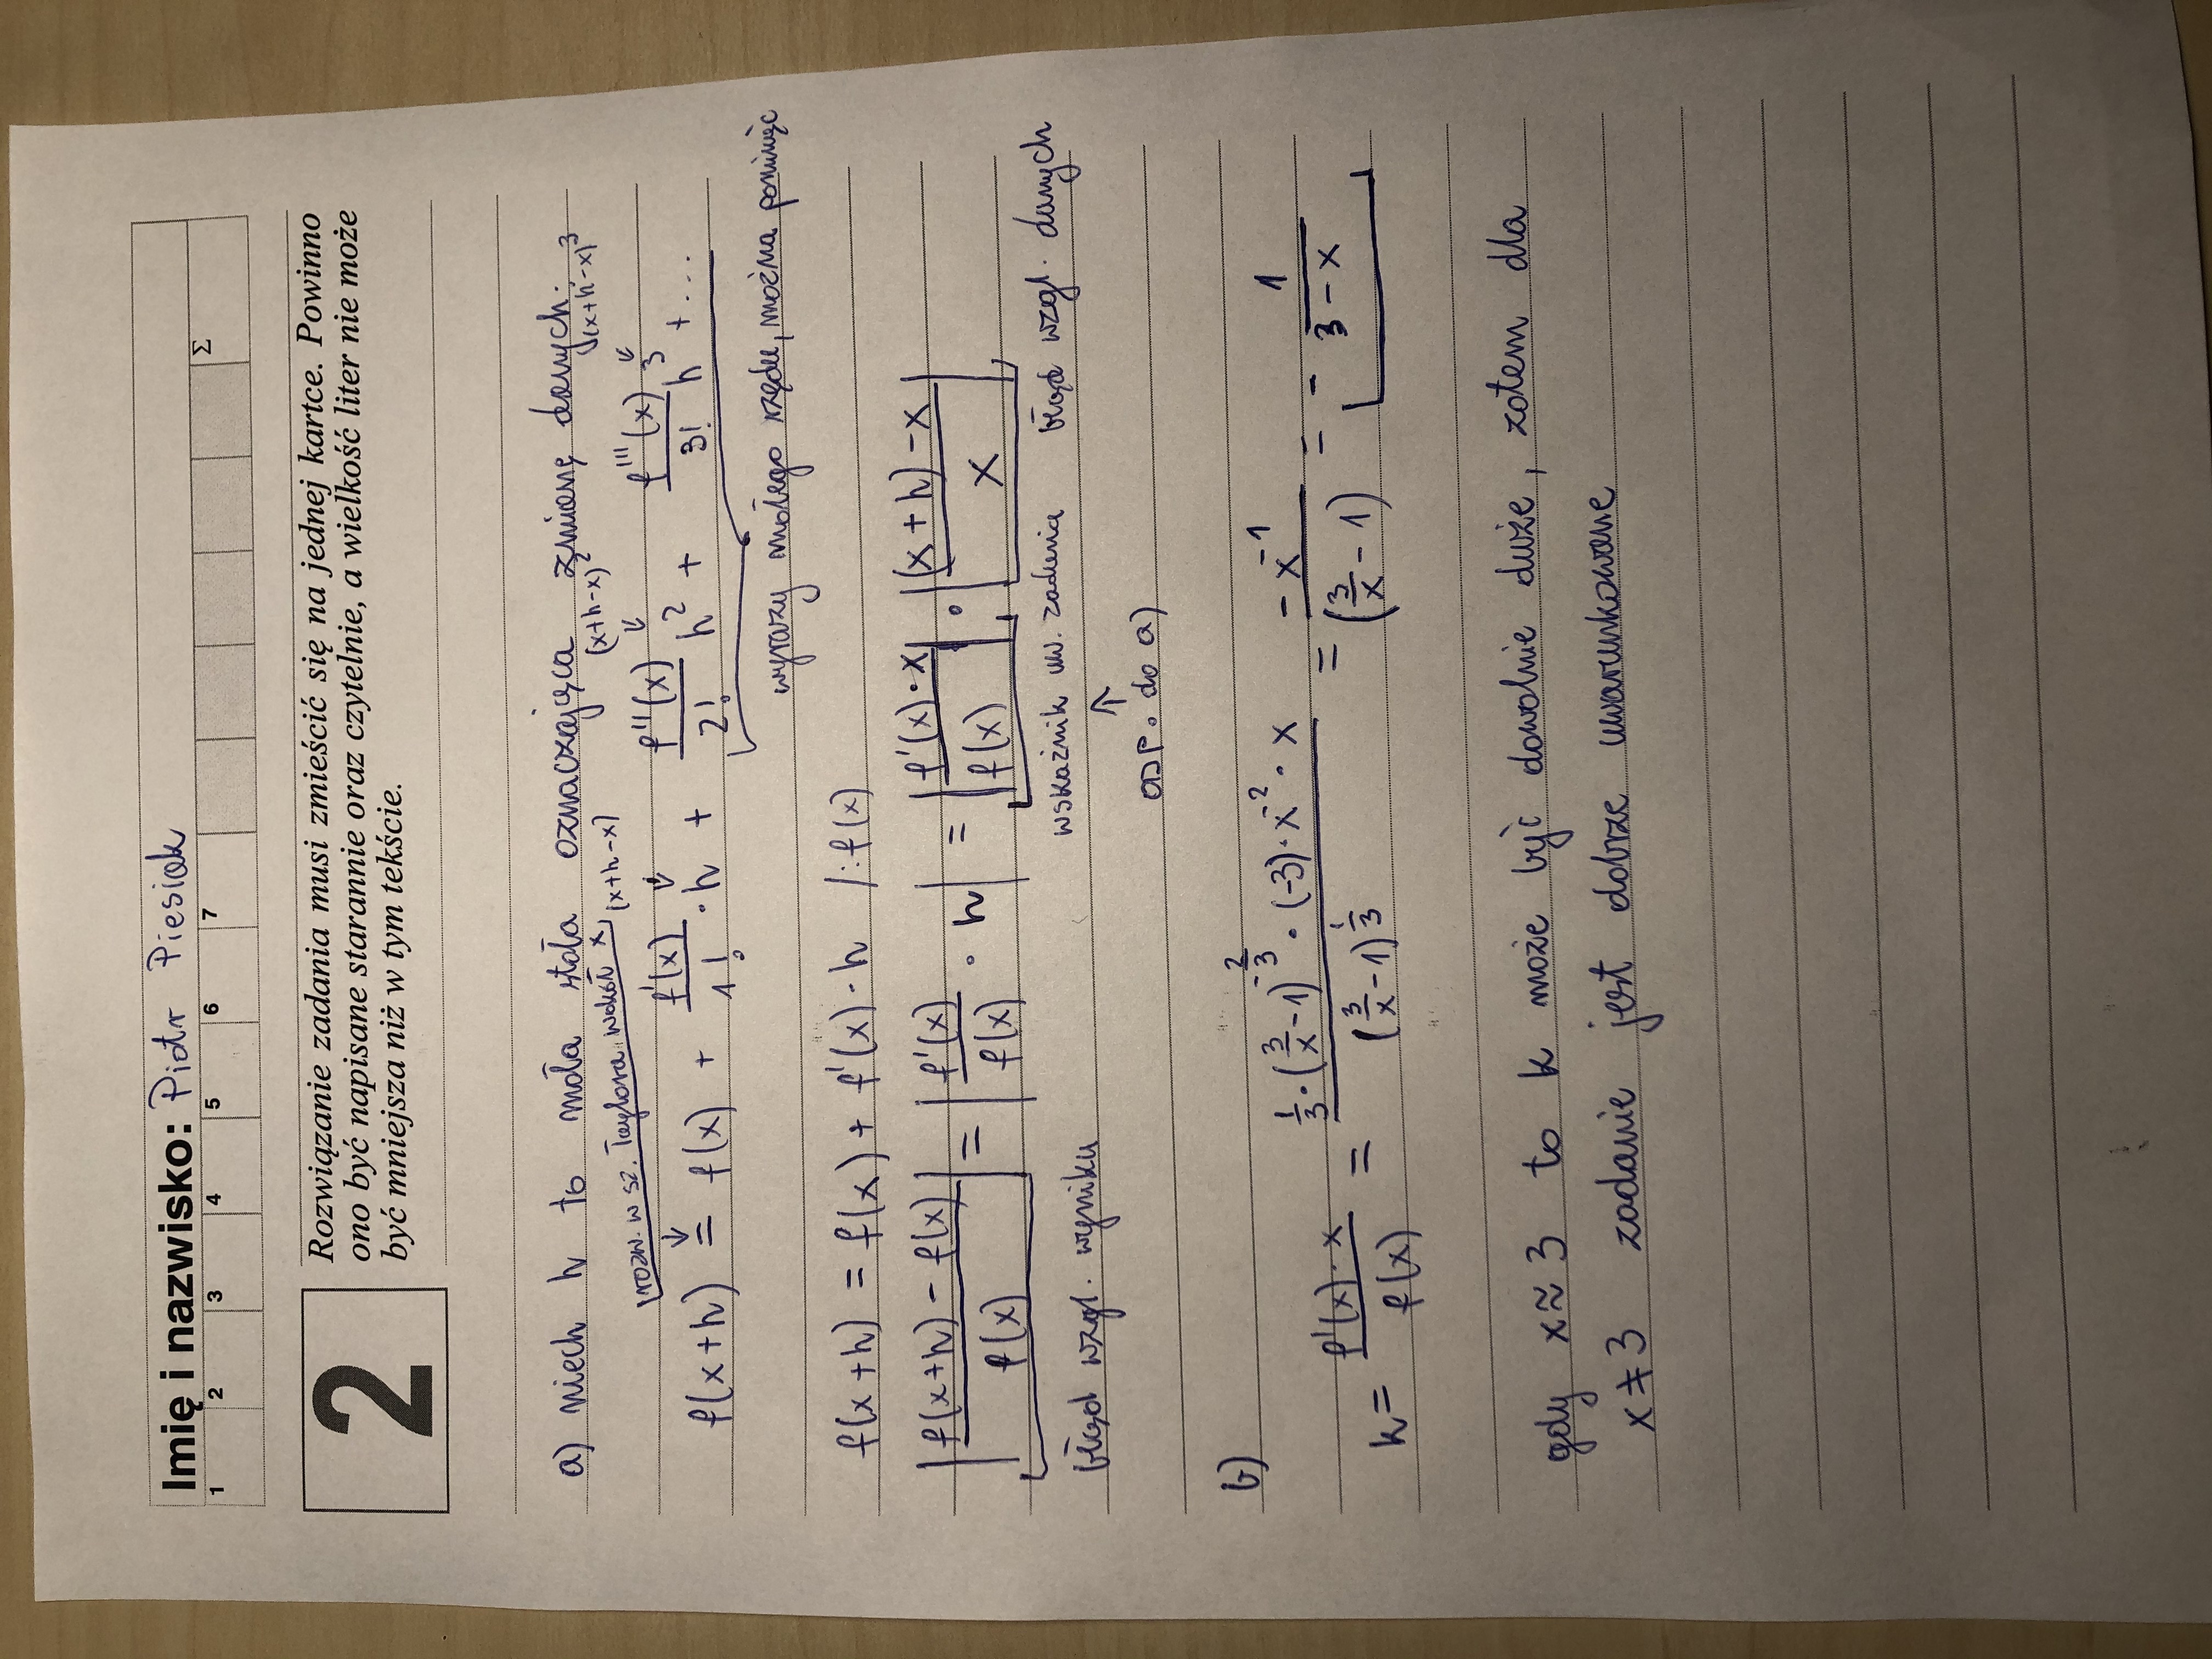 Imię i nazwisko: Piotr Piesiak
1 2 3 4 5 6 7 Σ
2
Rozwiązanie zadania musi zmieścić się na jednej kartce. Powinno
ono być napisane starannie oraz czytelnie, a wielkość liter nie może
być mniejsza niż w tym tekście.
a) niech h to mała stała oznaczająca zmianę danych:
rozw. w sz. Taylora wokół x (x+h-x) (x+h-x)² (x+h-x)³
f(x+h) = f(x) + f'(x)/1! · h + f''(x)/2! h² + f'''(x)/3! h³ + ...
wyrazy małego rzędu, można pominąć
f(x+h) = f(x) + f'(x)·h /:f(x)
|(f(x+h) - f(x))/f(x)| = |f'(x)/f(x) · h| = |f'(x)·x/f(x)| · |((x+h)-x)/x|
błąd wzgl. wyniku wskaźnik uw. zadania błąd wzgl. danych
↑
odp. do a)
b)
k = f'(x)·x/f(x) = (1/3·(3/x-1)^(-2/3) · (-3)·x^-2 · x)/((3/x-1)^(1/3)) = -x^-1/(3/x-1) = - 1/(3-x)
gdy x≈3 to k może być dowolnie duże, zatem dla
x≠3 zadanie jest dobrze uwarunkowane